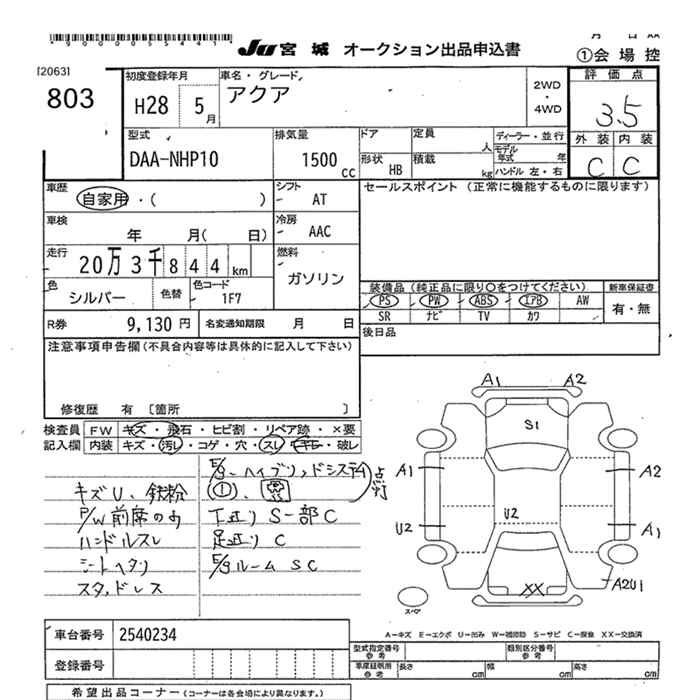 *900005544 1*
JU 宮城 オークション出品申込書
①会場控
[2063]
803
初度登録年月
H28 5月
車名・グレード
アクア
2WD
・
4WD
評価点
3.5
外装 内装
C C
型式
DAA-NHP10
排気量
1500cc
ドア
形状 HB
定員 人
積載 kg
ディーラー・並行
モデル年式 年
ハンドル 左・右
車歴
自家用・( )
シフト
AT
セールスポイント (正常に機能するものに限ります)
車検
年 月( 日)
冷房
AAC
走行
20万3千844km
燃料
ガソリン
色
シルバー
色替
色コード
1F7
装備品(純正品に限り〇をつけてください)
新車保証書
PS PW ABS エアB AW
SR ナビ TV カワ
有・無
R券 9,130円
名変通知期限 月 日
後日品
注意事項申告欄(不具合内容等は具体的に記入して下さい)
修復歴 有 [箇所 ]
検査員記入欄
FW キズ・飛石・ヒビ割・リペア跡・×要
内装 キズ・汚レ・コゲ・穴・スレ・破レ
E/g・ハイブリッドシステム 点灯
キズU、鉄粉
P/W前席のみ
下廻り S一部C
ハンドルスレ
足廻り C
シートヘタリ
E/gルーム SC
スタッドレス
A1 A2
S1
A1 A2
U2
U2 A1
XX
A2U1
スペア
A-キズ E-エクボ U-凹み W-補修跡 S-サビ C-腐食 XX-交換済
車台番号 2540234
登録番号
型式指定番号 参考
類別区分番号 参考
車庫証明用 参考 長さ cm 幅 cm 高さ cm
希望出品コーナー(コーナーは各会場により異なります。)